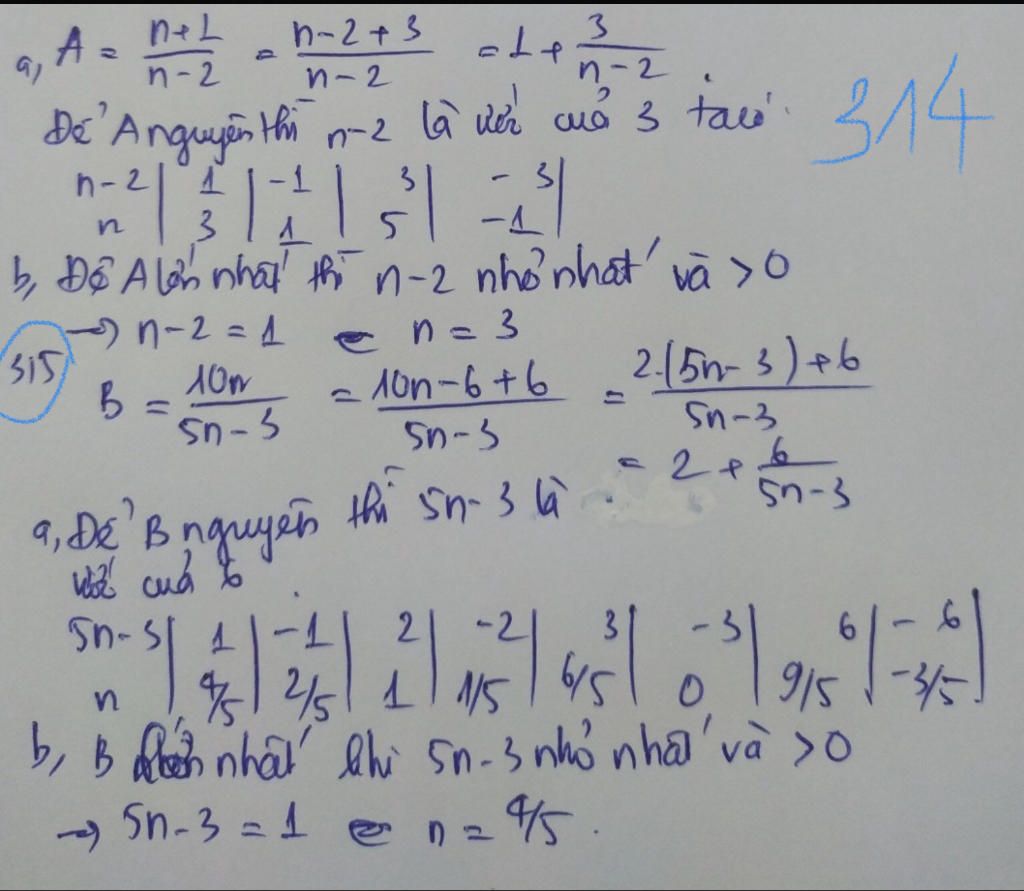 a, A = \frac{n+1}{n-2} = \frac{n-2+3}{n-2} = 1 + \frac{3}{n-2}.
314
Để A nguyên thì n-2 là ước của 3 ta có:
n-2 | 1 | -1 | 3 | -3 |
n | 3 | 1 | 5 | -1 |
b, Để A lớn nhất thì n-2 nhỏ nhất và >0
→ n-2 = 1 ⇔ n = 3
315
B = \frac{10n}{5n-3} = \frac{10n-6+6}{5n-3} = \frac{2.(5n-3)+6}{5n-3}
= 2 + \frac{6}{5n-3}
a, Để B nguyên thì 5n-3 là
ước của 6
5n-3 | 1 | -1 | 2 | -2 | 3 | -3 | 6 | -6 |
n | 4/5 | 2/5 | 1 | 1/5 | 6/5 | 0 | 9/5 | -3/5 |
b, B lớn nhất khi 5n-3 nhỏ nhất và >0
→ 5n-3 = 1 ⇔ n = 4/5.